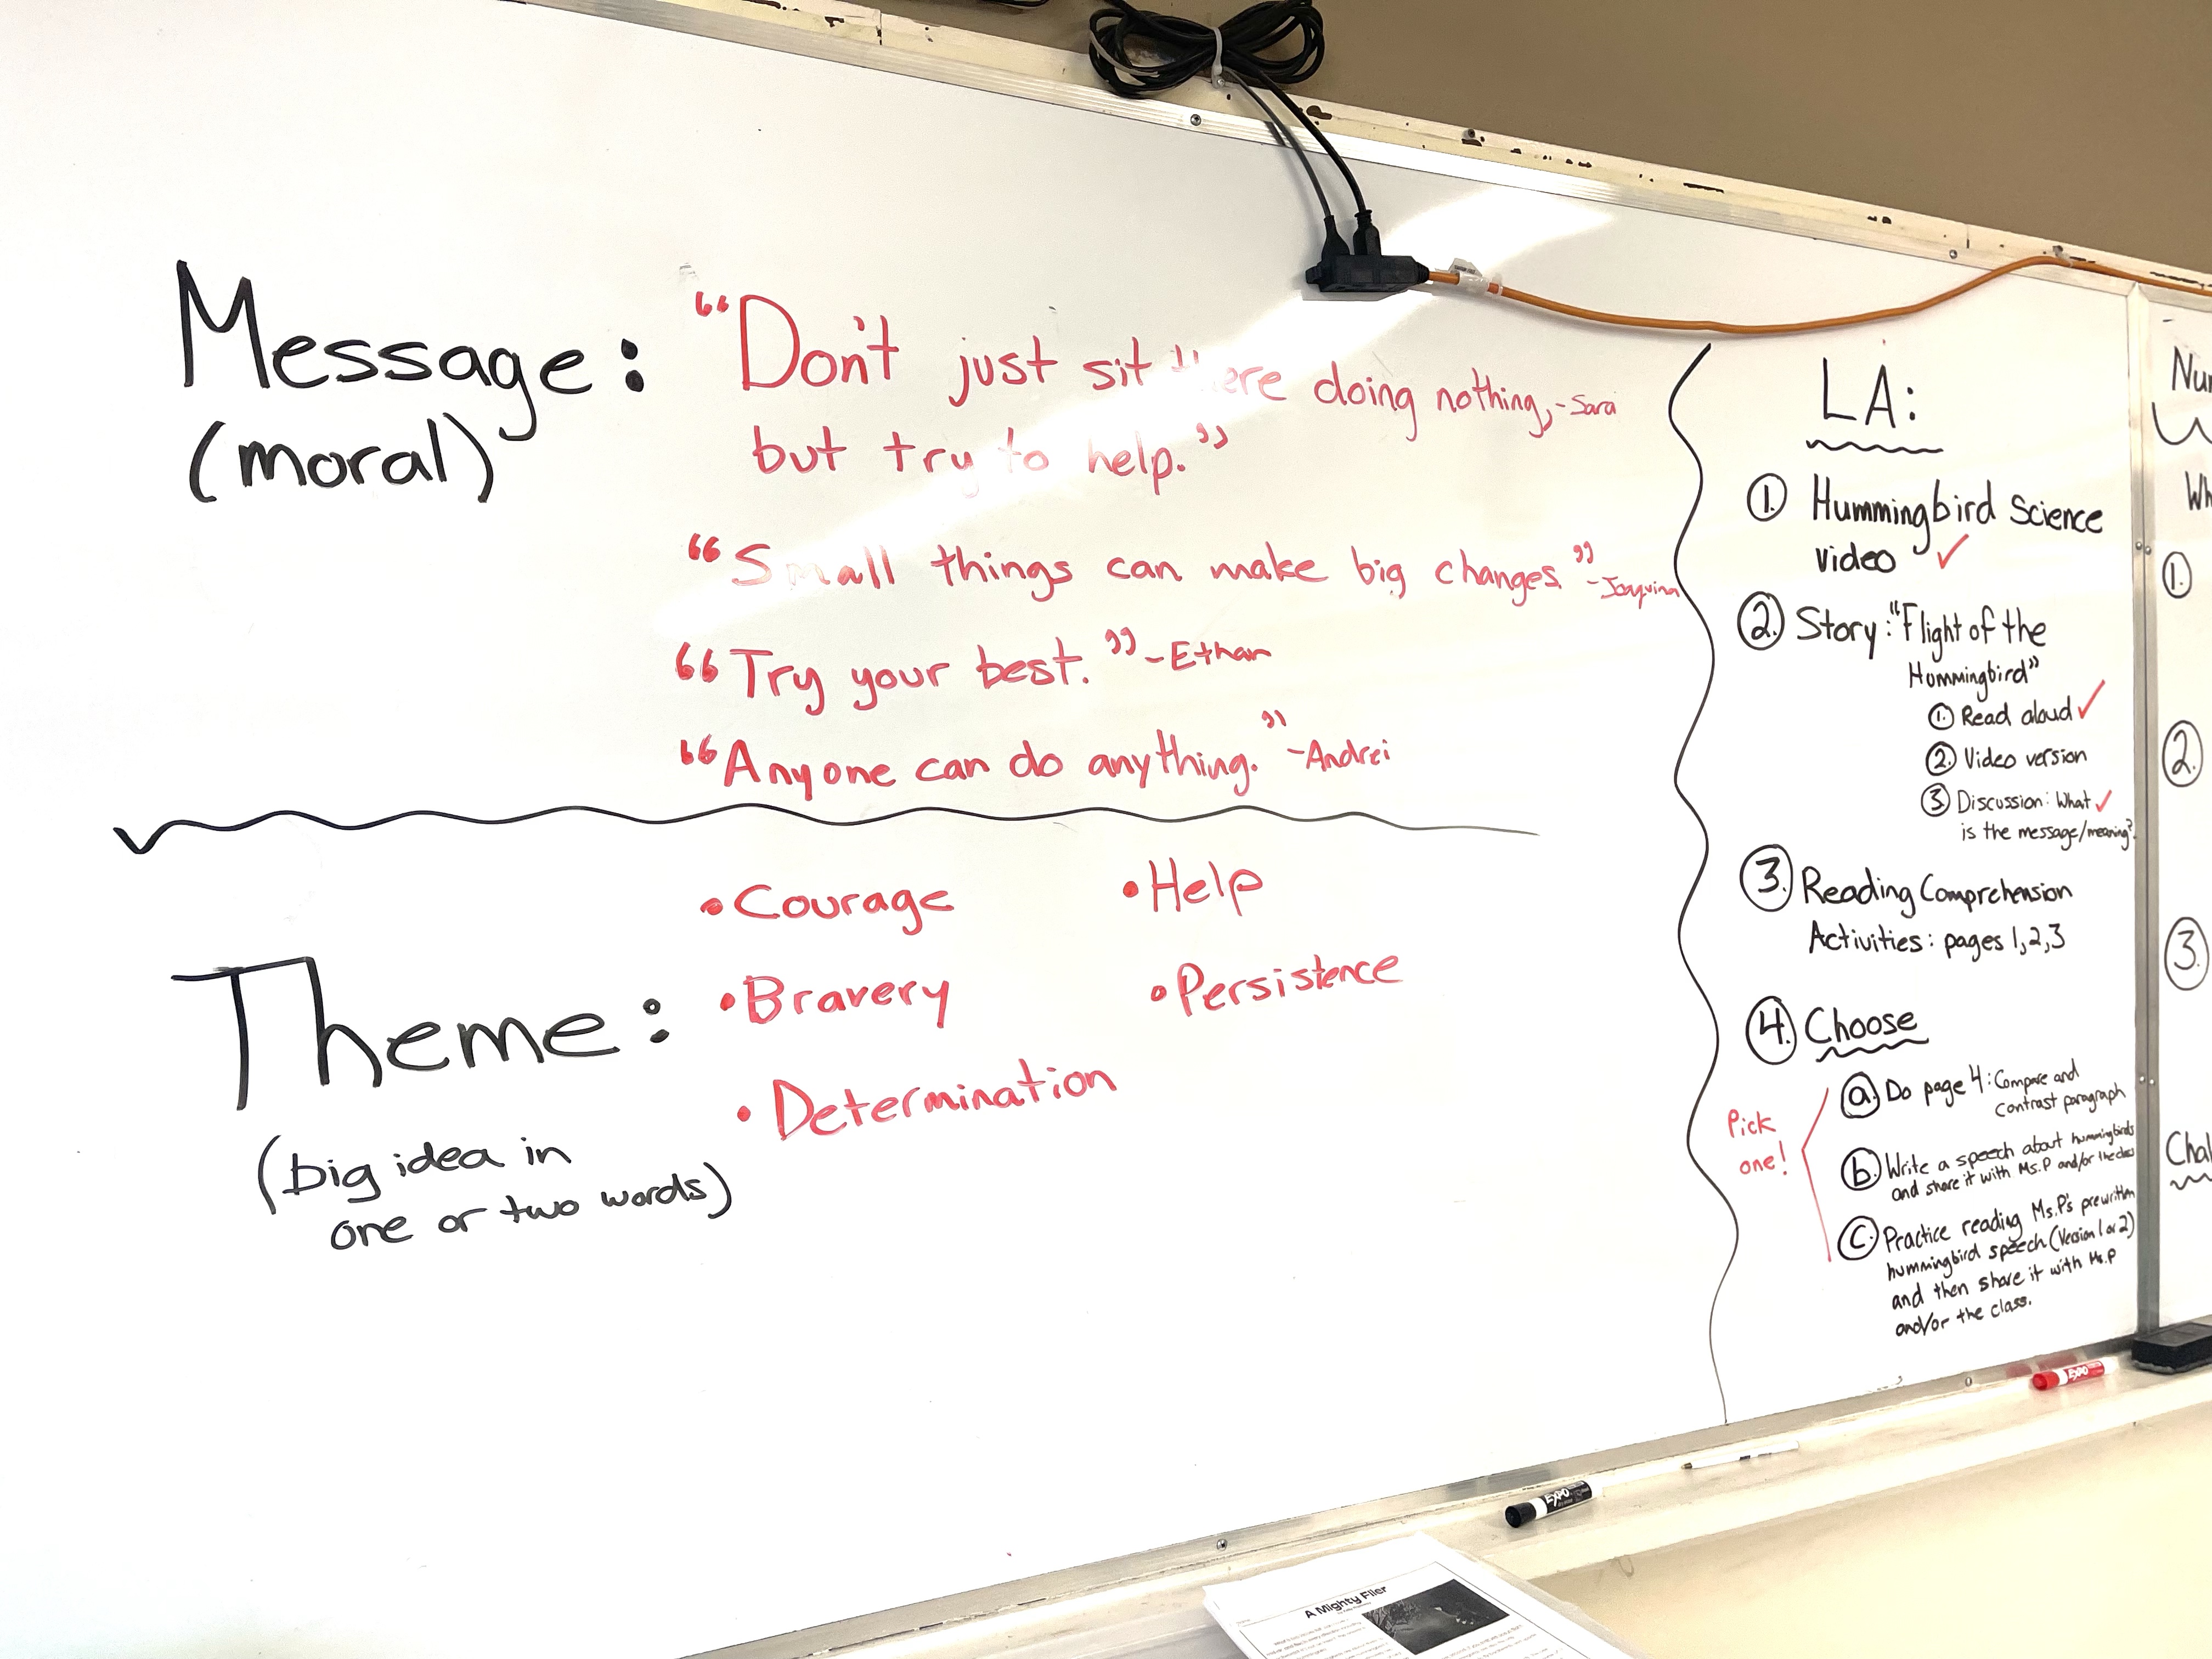 Message:
(moral)
“Don't just sit there doing nothing, -Sara
but try to help.”
“Small things can make big changes” -Joaquina
“Try your best.” -Ethan
“Anyone can do anything.” -Andrei
Theme:
(big idea in
one or two words)
• Courage
• Bravery
• Determination
• Help
• Persistence
LA:
1. Hummingbird Science
video ✓
2. Story: “Flight of the
Hummingbird”
1. Read aloud ✓
2. Video version
3. Discussion: What ✓
is the message/meaning?
3. Reading Comprehension
Activities: pages 1,2,3
4. Choose
Pick
one!
a. Do page 4: Compare and
contrast paragraph
b. Write a speech about hummingbirds
and share it with Ms.P and/or the class
c. Practice reading Ms.P's prewritten
hummingbird speech (Version 1 or 2)
and then share it with Ms.P
and/or the class.
1.
2.
3.
EXPO
EXPO
A Mighty Flier